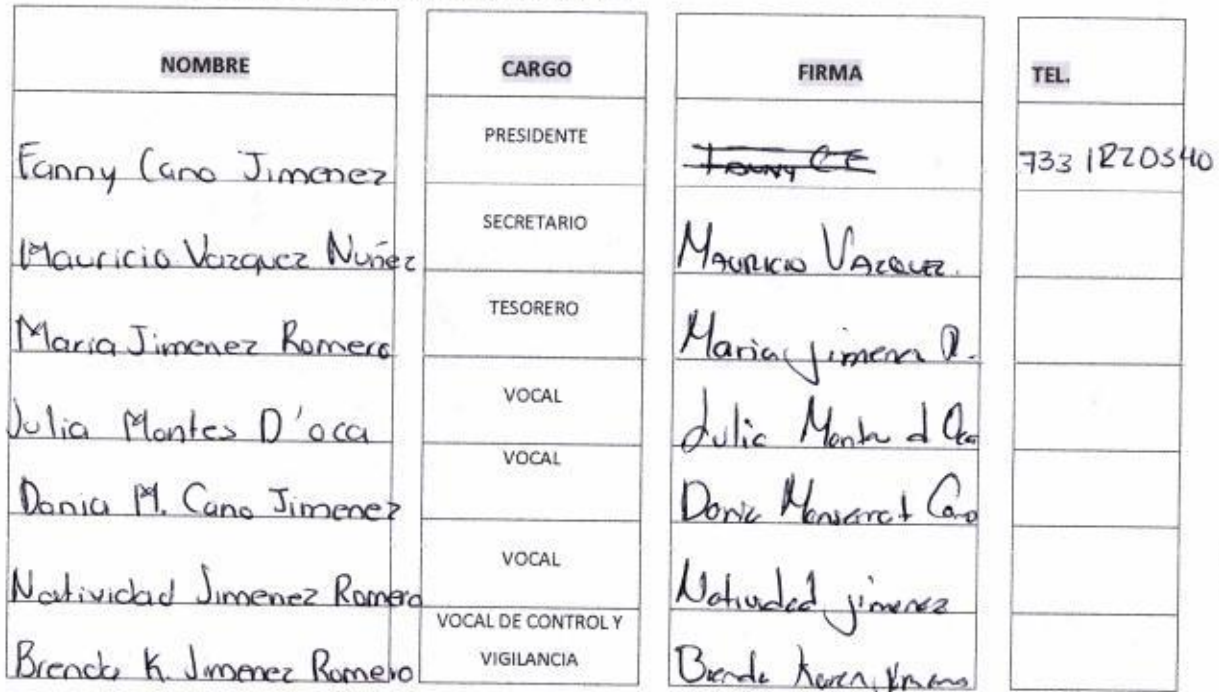 NOMBRE CARGO FIRMA TEL.
Fanny Cano Jimenez PRESIDENTE Fanny C E 733 1220340
Mauricio Vazquez Nuñez SECRETARIO Mauricio Vazquez.
Maria Jimenez Romero TESORERO Maria Jimenez R.
Julia Montes D'oca VOCAL Julia Montes d Oca
Dania M. Cano Jimenez VOCAL Dania Monserrat Cano
Natividad Jimenez Romero VOCAL Natividad jimenez
Brenda K. Jimenez Romero VOCAL DE CONTROL Y VIGILANCIA Brenda Karen